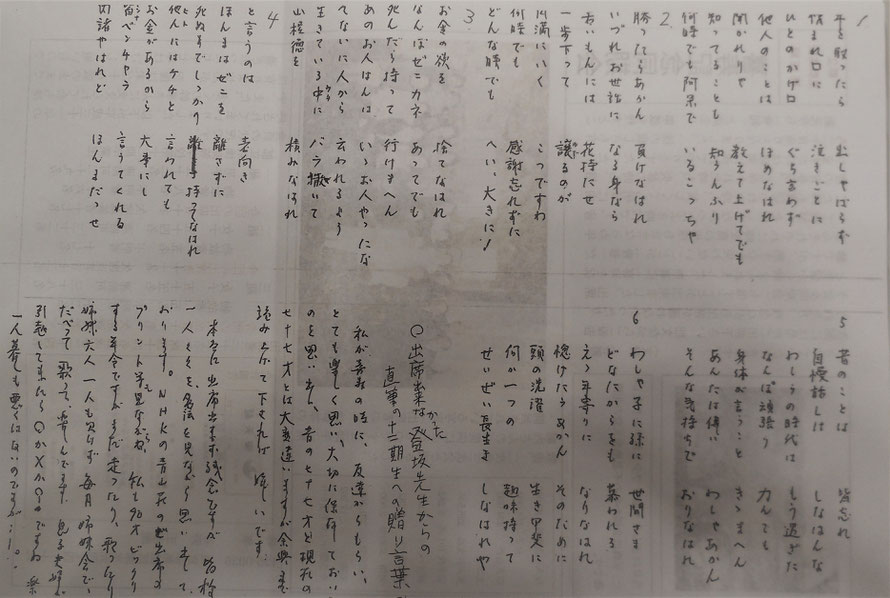 1
年を取ったら 出しゃばらず
憎まれ口に 泣きごとに
ひとのかげ口 ぐち言わず
他人のことは ほめなはれ
聞かれりゃ 教えて上げてでも
知ってることも 知らんふり
何時でも阿呆で いるこっちゃ
2
勝ったらあかん 負けなはれ
いづれお世話に なる身なら
若いもんには 花持たせ
一歩下って 譲るのが
円満にいく こつですわ
何時でも 感謝忘れずに
どんな時でも へい、大きに!
3
お金の欲を 捨てなはれ
なんぼゼニカネ あってでも
死んだら持って 行けまへん
あのお人はんは いゝお人やったな
てないに人から 云われるよう
生きている中に バラ撒いて
山程徳を 積みなはれ
4
と言うのは 表向き
ほんまはぜにを 離さずに
死ぬまでしっかり 持ってなはれ
他人にはケチと 言われても
お金があるから 大事にし
皆ベンチャラ 言うてくれる
内諸やけれど ほんまだっせ
5
昔のことは 皆忘れ
自慢話しは しなはんな
わしらの時代は もう過ぎた
なんぼ頑張り 力んでも
身体が言うこと きゝまへん
あんたは偉い わしゃあかん
そんな気持ちで おりなはれ
6
わしゃ子に孫に 世間さま
どなたからをも 慕われる
えゝ年寄りに なりなはれ
惚けたらあかん そのために
頭の洗濯 生き甲斐に
何か一つの 趣味持って
せいぜい長生き しなはれや
○出席出来なかった登坂先生からの
直筆の十二期生への贈り言葉。
私が喜寿の時に、友達からもらい、
とても楽しく思い、大切に保存しておい
のを思い出し、昔の七十七才と現在の
七十七才とは大違いますが余興まで
読み上げて下されば嬉しいです。
本当に出席出来ず残念ですが 皆
一人を名簿を見ながら思い出して
おります。NHKの青山荘の
プリント等見ながらね、私も90才ビックリ
する年令ですがまだ走ったり、歌ったり
姉妹六人一人も欠けず毎月姉妹会で、
だべって歌って、楽しんでます。息子夫婦が
引越して来たら
一人暮しも悪くはないのですが…。